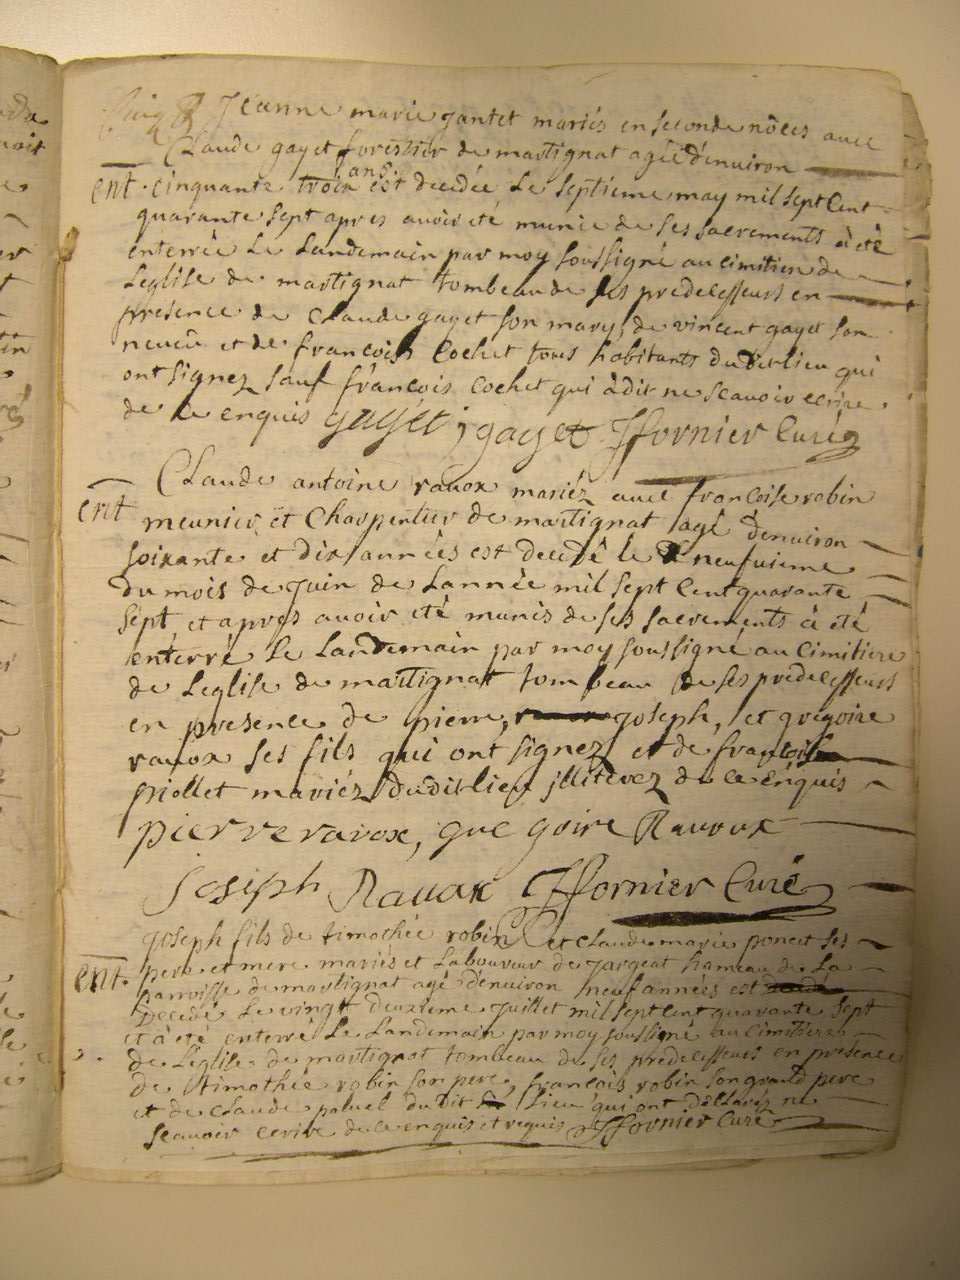 Jeanne marie gantet mariés en seconde nôces avec
Claude gayet forestier de martignat agée d'environ
ent. cinquante trois ans est decédée le septieme may mil sept Cent
quarante sept apres avoir été munie de ses sacrements à été
enterrée le Landemain par moy soussigné au cimitiere de
Leglise de martignat tombeau de ses predecesseurs en
présence de Claude gayet son mary, de vincent gayet son
neveu et de francois Cochet tous habitants dudit lieu qui
ont signez sauf francois Cochet qui à dit ne scavoir ecrire
de ce enquis gayet, gayet Jfornier Curé
Claude antoine ravox mariéz avec francoise robin
ent meunier et Charpentier de martignat agé d'environ
soixante et dix années est decedé le neufvieme
du mois de Juin de Lannée mil sept Cent quarante
sept et apres avoir été munis de ses sacrements à été
enterré le Landemain par moy soussigné au cimitiere
de Leglise de martignat tombeau de ses predecesseurs
en presence de pierre, joseph, et gregoire
ravox ses fils qui ont signez et de francois
piollet mariéz dudit lieu jlliterez de ce enquis
pierre ravox, gregoire Ravoux
Joseph Ravox Jfornier Curé
joseph fils de timothée robin et Claude marie poncet ses
ent. pere et mere mariés et Laboureur de Jargeat hameau de La
parroisse de martignat agé d'environ neuf années est
Decedé le vingt deuxieme Juillet mil sept Cent quarante sept
et à été enterré le Landemain par moy soussigné au Cimitiere
de Leglise de martignat tombeau de ses predecesseurs en presence
de timothée robin son pere, francois robin son grand pere
et de Claude paluel dudit Lieu qui ont Déclarez ne
Scavoir ecrire de ce enquis et requis Jfornier Curé